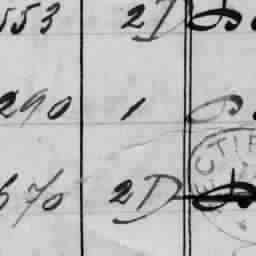 553 2D
290 1
670 2D
ECTIF